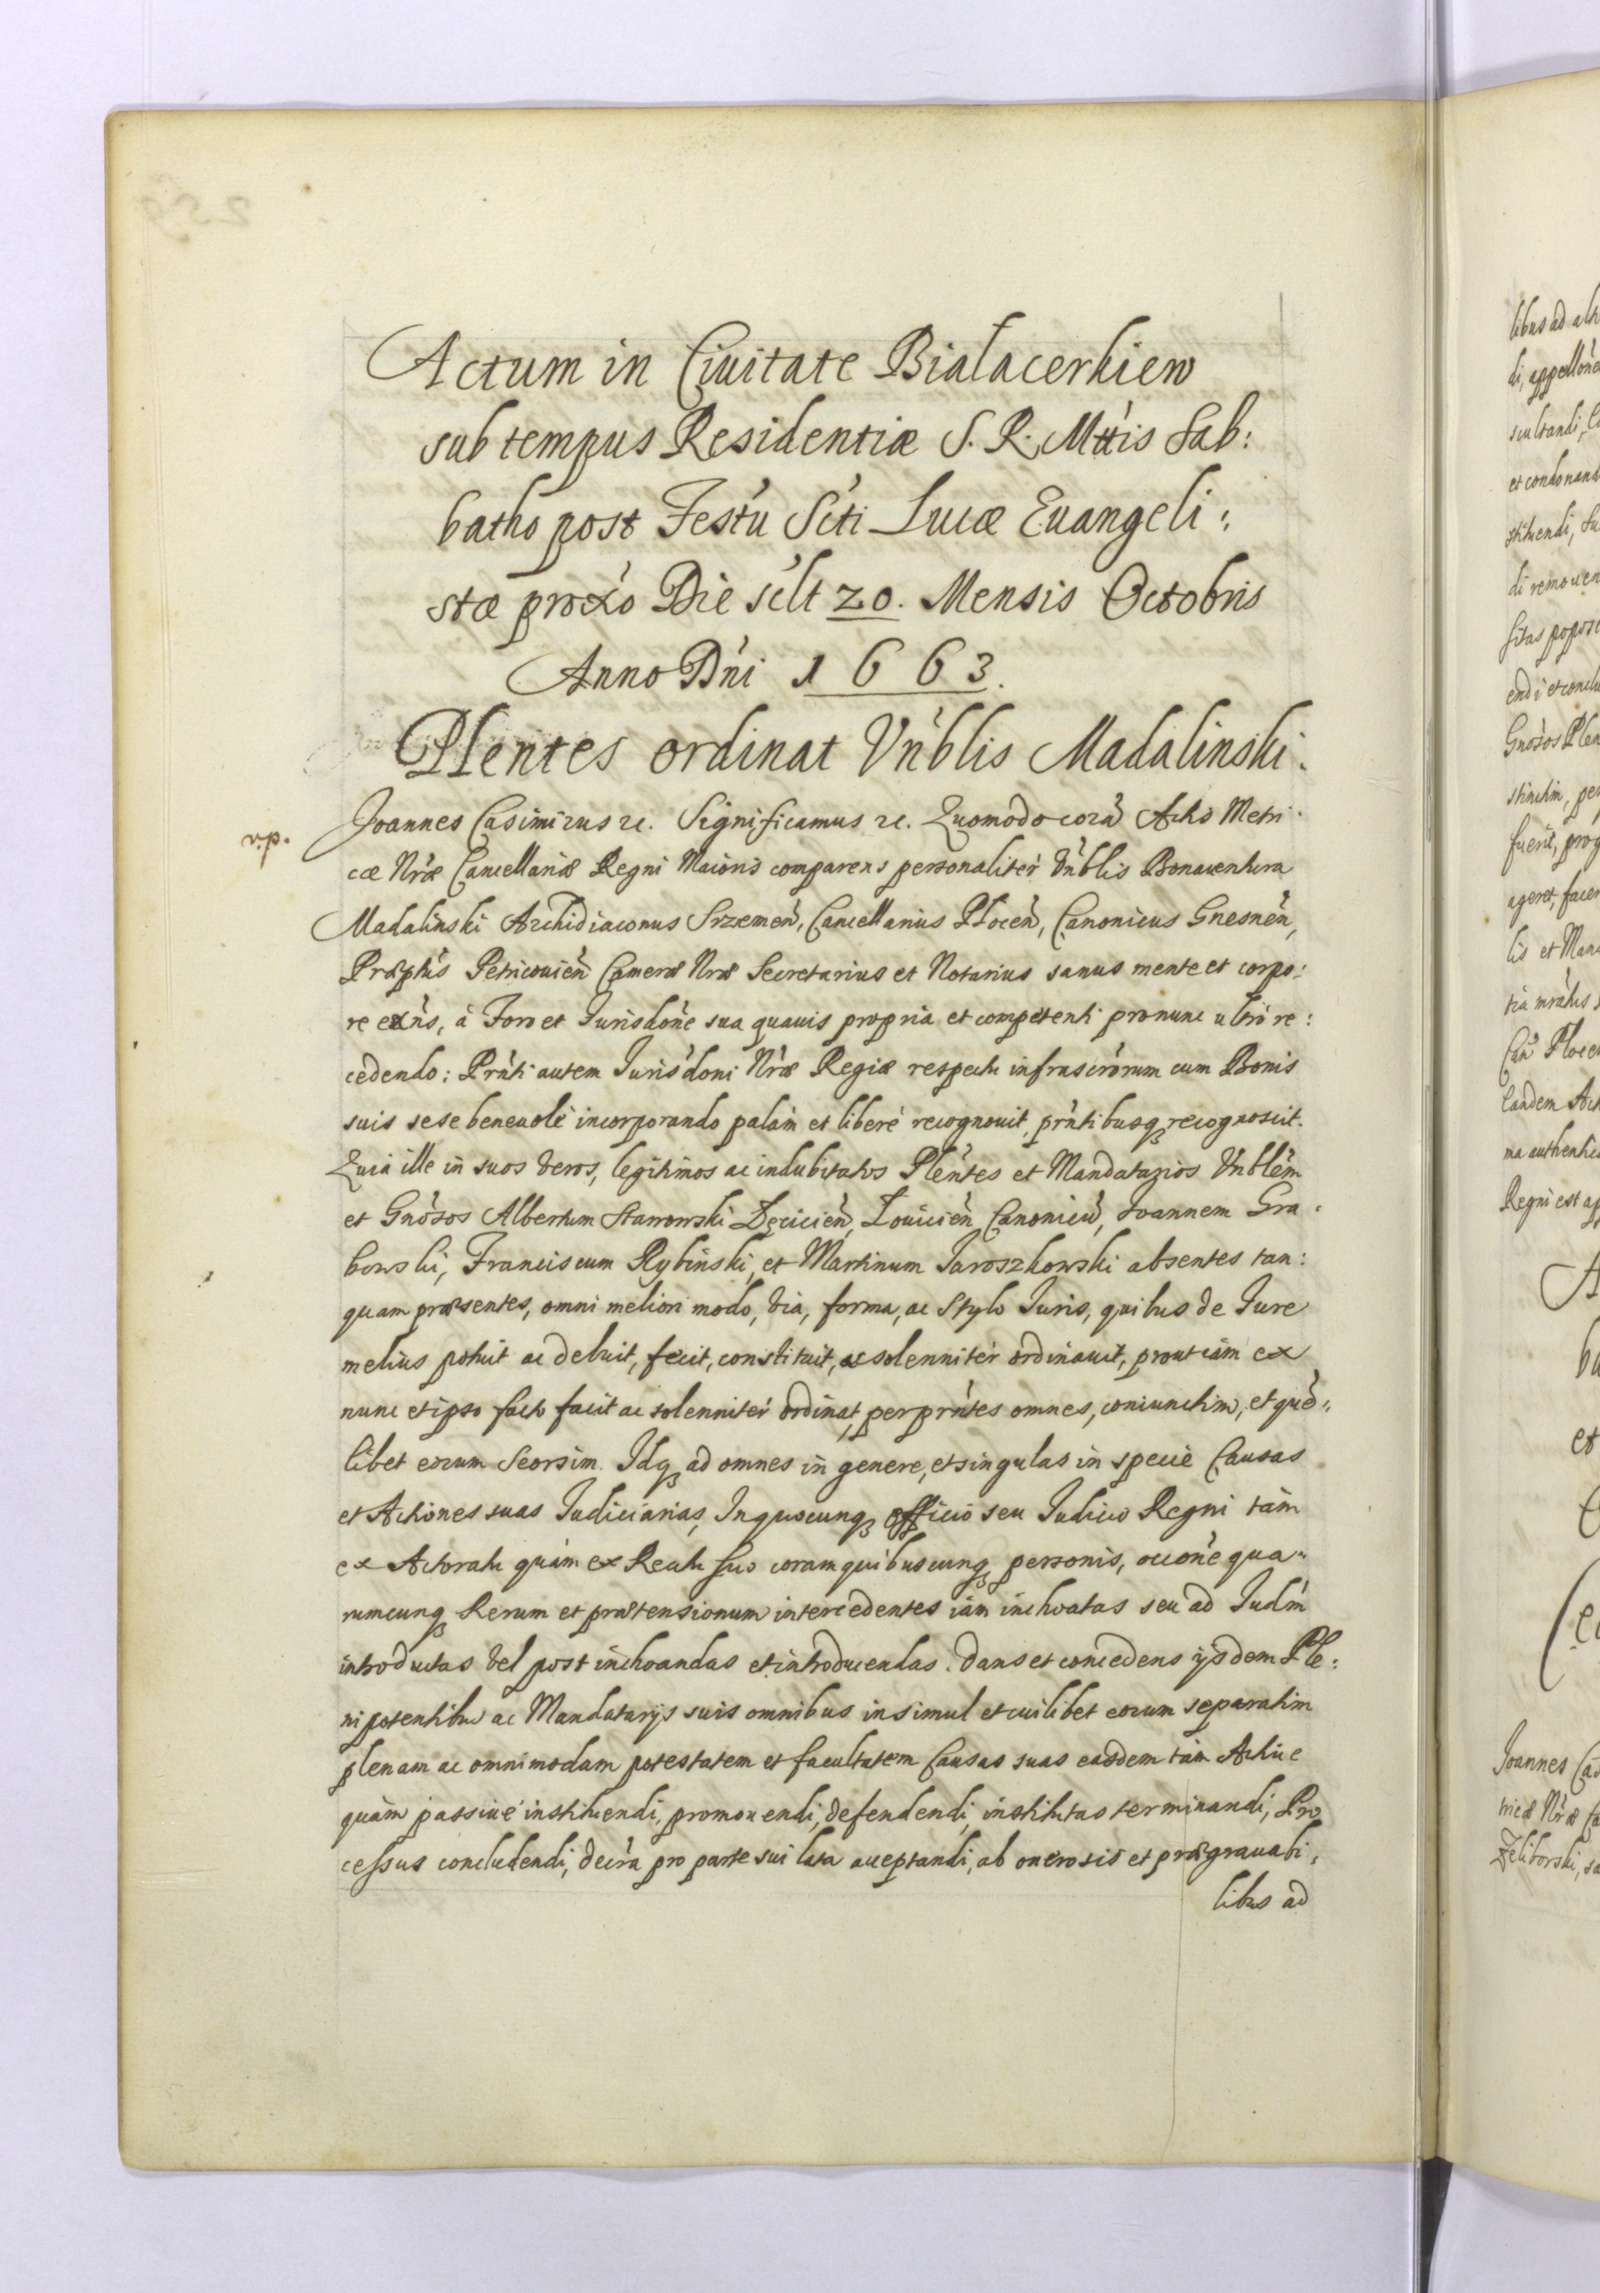 Actum in Ciuitate Białacerkiew
sub tempus Residentiæ S. R. Mttis Sab:
batho post Festu Scti Lucæ Euangeli:
stæ proxo Die sclt 20. Mensis Octobris
Anno Dni 1663.
Plentes ordinat Vnblis Madalinski.
v.p.
Joannes Casimirus etc. Significamus etc. Quomodo corã Actis Metri:
cæ Nræ Cancellariæ Regni Maioris comparens personaliter Vnblis Bonauentura
Madalinski Archidiaconus Srzemen, Cancellarius Plocen, Canonicus Gnesnen,
Præptus Petricouien Cameræ Nræ Secretarius et Notarius sanus mente et corpo:
re exns, à Foro et Jurisdone sua quauis propria et competenti pro nunc ultrò re:
cedendo: Prnti autem Jurisdoni Nræ Regiæ respectu infrascrorum cum Bonis
suis sese beneuolè incorporando palàm et liberè recognouit, prntibusq recognoscit.
Quià ille in suos veros, legitimos ac indubitatos Plentes et Mandatarios Vnblem
et Gnosos Albertum Stawowski Lęcicien, Louicien Canonicũ, Joannem Gra:
bowski, Franciscum Rybinski, et Martinum Jaroszkowski absentes tan:
quam præsentes, omni meliori modo, via, forma, ac Stylo Juris, quibus de Jure
melius potuit ac debuit, fecit, constituit, ac solenniter ordinauit, prout iam ex
nunc et ipso facto facit ac solenniter ordinat, per prntes omnes, coniunctim, et quo:
libet eorum Seorsim. Idq ad omnes in genere, et singulas in specie Causas
et Actiones suas Judiciarias, In quocunq officio seu Judicio Regni tàm
ex Actoratu quàm ex Reatu suo coram quibuscunq personis, occone qua:
rumcunq Rerum et prætensionum intercedentes iam inchoatas seu ad Judm
introductas vel post inchoandas et introducendas. Dans et concedens ijsdem Ple:
nipotentibus ac Mandatarijs suis omnibus insimul et cuilibet eorum separatim
plenam ac omnimodam potestatem et facultatem Causas suas easdem tàm Actiue
quàm passiuè instituendi, promouendi, defendendi, institutas terminandi, Pro
cessus concludendi, decra pro parte sui lata acceptandi, ab onerosis et prægrauabi:
libus ad